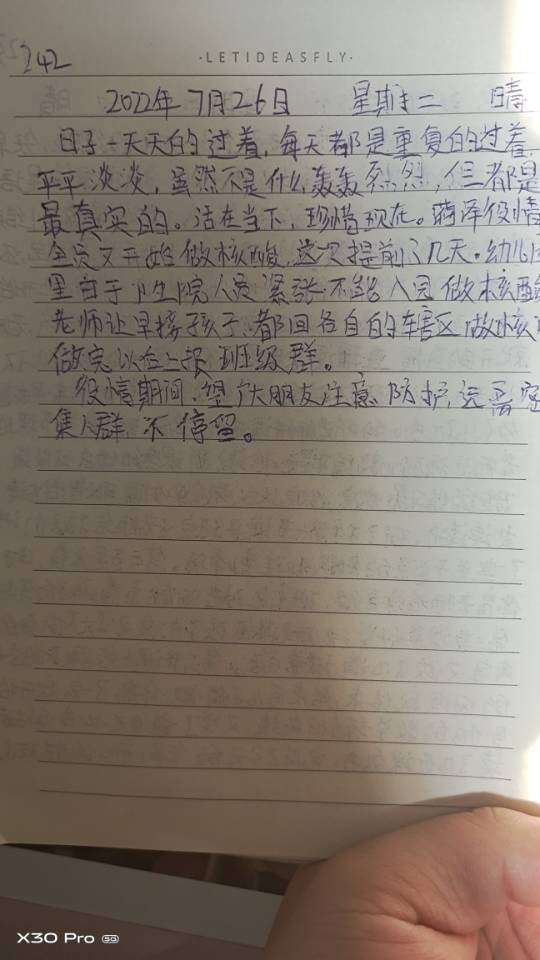 242
·LETIDEASFLY·
2022年7月26日 星期二 晴
日子一天天的过着,每天都是重复的过着
平平淡淡,虽然不是什么轰轰烈烈,但都是
最真实的。活在当下,珍惜现在。菏泽疫情
全员又开始做核酸,这次提前了几天。幼儿园
里由于卫生院人员紧张不能入园做核酸
老师让早接孩子,都回各自的辖区做核酸
做完以后上报班级群。
疫情期间,望广大朋友注意防护,远离密
集人群,不停留。
X30 Pro 5G